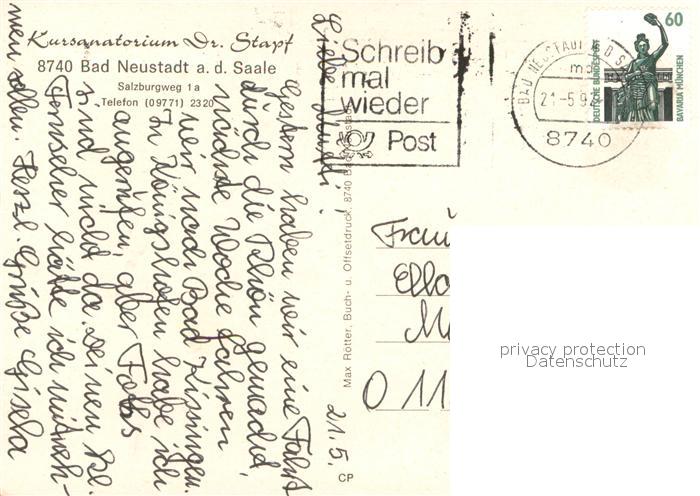 Kursanatorium Dr. Stapf
8740 Bad Neustadt a. d. Saale
Salzburgweg 1a
Telefon (09771) 2320
21.5.
Gestern haben wir eine Fahrt
durch die Rhön gemacht,
nächste Woche fahren
wir nach Bad Kissingen.
In Königshofen habe ich
angerufen, aber Fotos
sind nicht da. Deinen Kl.
Fernseher hätte ich mitneh-
men sollen. Herzl. Grüße Gisela
Max Rötter, Buch- u. Offsetdruck, 8740 Bad Neustadt
CP
Schreib
mal
wieder
Post
BAD NEUSTADT A D S
21.-5.9
8740
60
DEUTSCHE BUNDESPOST
BAVARIA MÜNCHEN
Frau
Ella
M
O 11
privacy protection
Datenschutz